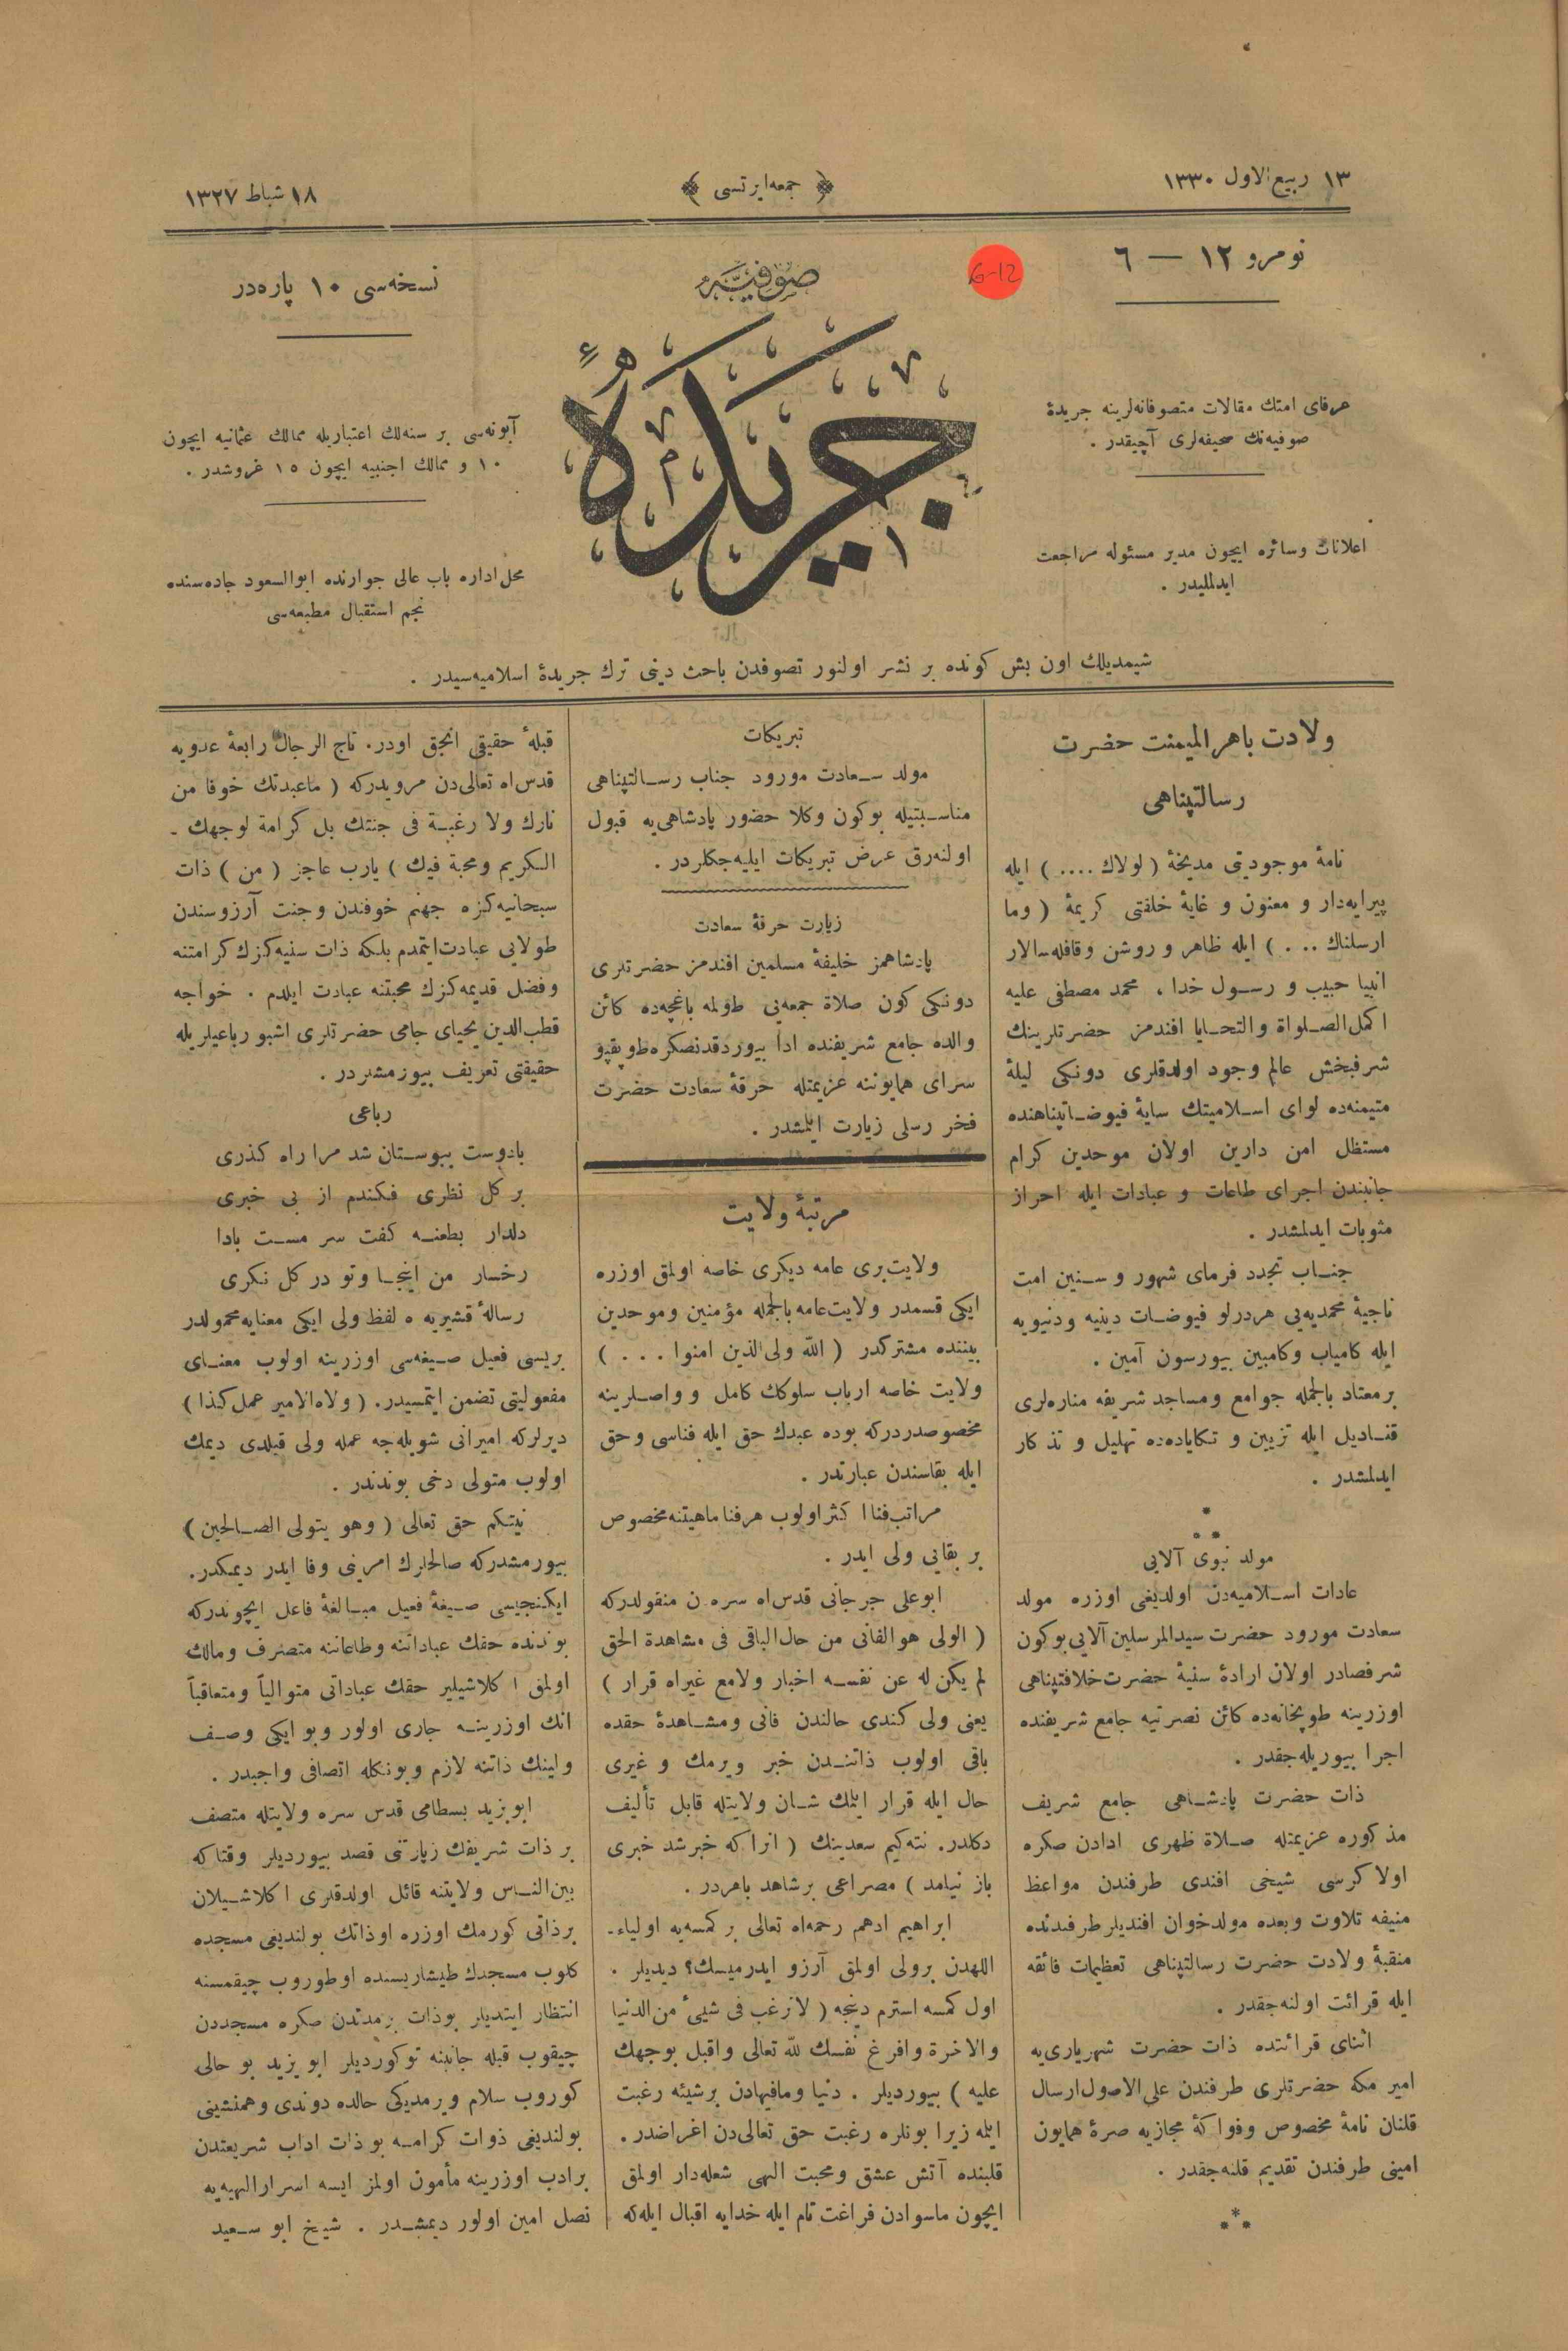 ١٣ ربيع الاول ١٣٣٠
﴿ جمعه‌ايرتسى ﴾
١٨ شباط ١٣٢٧
نومرو ١٢ — ٦
6-12
صوفيه
جريدۀ
نسخه‌سى ١٠ پاره‌در
عرفاى امتك مقالات متصوفانه‌لرينه جريدۀ
صوفيه‌نك صحيفه‌لرى آچيقدر .
اعلانات وسائره ايچون مدير مسئوله مراجعت
ايدلمليدر .
آبونه‌سى بر سنه‌لك اعتباريله ممالك عثمانيه ايچون
١٠ و ممالك اجنبيه ايچون ١٥ غروشدر .
محل اداره باب عالى جوارنده ابوالسعود جاده‌سنده
نجم استقبال مطبعه‌سى
شيمديلك اون بش كونده بر نشر اولنور تصوفدن باحث دينى ترك جريدۀ اسلاميه‌سيدر .
ولادت باهر الميمنت حضرت
رسالتپناهى
نامۀ موجوديتى مديحۀ ( لولاك .... ) ايله
پيرايه‌دار و معنون و غايۀ خلقتى كريمۀ ( وما
ارسلناك ... ) ايله ظاهر و روشن وقافله‌سالار
انبيا حبيب و رسول خدا ، محمد مصطفى عليه
اكمل الصلواة والتحايا افندمز حضرتلرينك
شرفبخش عالم وجود اولدقلرى دونكى ليلۀ
متيمنه‌ده لواى اسلاميتك سايۀ فيوضاتپناهنده
مستظل امن دارين اولان موحدين كرام
جانبندن اجراى طاعات و عبادات ايله احراز
مثوبات ايدلمشدر .
جناب تجدد فرماى شهور وسنين امت
ناجيۀ محمديه‌يى هردرلو فيوضات دينيه ودنيويه
ايله كامياب وكامبين بيورسون آمين .
برمعتاد بالجمله جوامع ومساجد شريفه مناره‌لرى
قناديل ايله تزيين و تكاياده‌ده تهليل و تذكار
ايدلمشدر .
* * *
مولد نبوى آلايى
عادات اسلاميه‌دن اولديغى اوزره مولد
سعادت مورود حضرت سيدالمرسلين آلايى بوكون
شرفصادر اولان ارادۀ سنيۀ حضرت خلافتپناهى
اوزرينه طوپخانه‌ده كائن نصرتيه جامع شريفنده
اجرا بيوريله‌جقدر .
ذات حضرت پادشاهى جامع شريف
مذكوره عزيمتله صلاة ظهرى ادادن صكره
اولا كرسى شيخى افندى طرفندن مواعظ
منيفه تلاوت وبعده مولدخوان افنديلر طرفندنده
منقبۀ ولادت حضرت رسالتپناهى تعظيمات فائقه
ايله قرائت اولنه‌جقدر .
اثناى قرائتده ذات حضرت شهريارى‌يه
امير مكه حضرتلرى طرفندن على الاصول ارسال
قلنان نامۀ مخصوص وفواكۀ حجازيه صرۀ همايون
امينى طرفندن تقديم قلنه‌جقدر .
* * *
تبريكات
مولد سعادت مورود جناب رسالتپناهى
مناسبتيله بوكون وكلا حضور پادشاهى‌يه قبول
اولنه‌رق عرض تبريكات ايليه‌جكلردر .
زيارت خرقۀ سعادت
پادشاهمز خليفۀ مسلمين افندمز حضرتلرى
دونكى كون صلاة جمعه‌يى طولمه باغچه‌ده كائن
والده جامع شريفنده ادا بيوردقدنصكره طوپقپو
سراى همايوننه عزيمتله خرقۀ سعادت حضرت
فخر رسلى زيارت ايلمشدر .
مرتبۀ ولايت
ولايت برى عامه ديكرى خاصه اولمق اوزره
ايكى قسمدر ولايت عامه بالجمله مؤمنين وموحدين
بيننده مشتركدر ( الله ولى الذين امنوا ... )
ولايت خاصه ارباب سلوكك كامل و واصلرينه
مخصوصدر دركه بوده عبدك حق ايله فناسى وحق
ايله بقاسندن عبارتدر .
مراتب فنا اكثر اولوب هرفنا ماهيتنه مخصوص
بر بقايى ولى ايدر .
ابوعلى جرجانى قدس اه سره ن منقولدركه
( الولى هوالفانى من حال الباقى فى مشاهدة الحق
لم يكن له عن نفسه اخبار ولامع غيراه قرار )
يعنى ولى كندى حالندن فانى ومشاهدۀ حقده
باقى اولوب ذاتندن خبر ويرمك و غيرى
حال ايله قرار ايتمك شان ولايتله قابل تأليف
دكلدر. نته‌كيم سعدينك ( انراكه خبر شد خبرى
باز نيامد ) مصراعى برشاهد باهردر .
ابراهيم ادهم رحمه‌اه تعالى بركمسه‌يه اولياء-
اللهدن برولى اولمق آرزو ايدرميسك؟ ديديلر .
اول كمسه استرم دينجه ( لاترغب فى شيئ من الدنيا
والاخرة وافرغ نفسك لله تعالى واقبل بوجهك
عليه ) بيورديلر . دنيا ومافيهادن برشيئه رغبت
ايتمه زيرا بونلره رغبت حق تعالى‌دن اغراضدر .
قلبنده آتش عشق ومحبت الهى شعله‌دار اولمق
ايچون ماسوادن فراغت تام ايله خدايه اقبال ايله‌كه
قبلۀ حقيقى انجق اودر. تاج الرجال رابعۀ عدويه
قدس‌اه تعالى‌دن مرويدركه ( ماعبدتك خوفا من
نارك ولا رغبة فى جنتك بل كرامة لوجهك -
الكريم ومحبة فيك ) يارب عاجز ( من ) ذات
سبحانيه‌كزه جهنم خوفندن وجنت آرزوسندن
طولايى عبادت ايتمدم بلكه ذات سنيه‌كزك كرامتنه
وفضل قديمه‌كزك محبتنه عبادت ايلدم . خواجه
قطب‌الدين يحياى جامى حضرتلرى اشبو رباعيلريله
حقيقتى تعريف بيورمشردر .
رباعى
بادوست ببوستان شد مرا راه كذرى
بركل نظرى فكندم از بى خبرى
دلدار بطعنه كفت سر مست بادا
رخسار من اينجا وتو در كل نكرى
رسالۀ قشيريه ه لفظ ولى ايكى معنايه محمولدر
بريسى فعيل صيغه‌سى اوزرينه اولوب معناى
مفعوليتى تضمن ايتمسيدر. ( ولاه الامير عمل كذا )
ديرلركه اميرانى شويله‌جه عمله ولى قيلدى ديمك
اولوب متولى دخى بوندندر .
نيتكم حق تعالى ( وهو يتولى الصالحين )
بيورمشدركه صالحلرك امرينى وفا ايدر ديمكدر.
ايكنجيسى صيغۀ فعيل مبالغۀ فاعل ايچوندركه
بوندنده حقك عباداتنه وطاعاتنه متصرف ومالك
اولمق اكلاشيلير حقك عباداتى متوالياً ومتعاقباً
انك اوزرينه جارى اولور وبو ايكى وصف
ولينك ذاتنه لازم وبونكله اتصافى واجبدر .
ابويزيد بسطامى قدس سره ولايتله متصف
بر ذات شريفك زيارتنى قصد بيورديلر وقتاكه
بين‌الناس ولايتنه قائل اولدقلرى اكلاشيلان
برذاتى كورمك اوزره اوذاتك بولنديغى مسجده
كلوب مسجدك طيشاريسنده اوطوروب چيقمسنه
انتظار ايتديلر بوذات برمدتدن صكره مسجددن
چيقوب قبله جانبنه توكورديلر ابو يزيد بو حالى
كوروب سلام ويرمديكى حالده دوندى وهمنشينى
بولنديغى ذوات كرامه بوذات اداب شريعتدن
برادب اوزرينه مأمون اولمز ايسه اسرارالهيه‌يه
نصل امين اولور ديمشدر . شيخ ابو سعيد